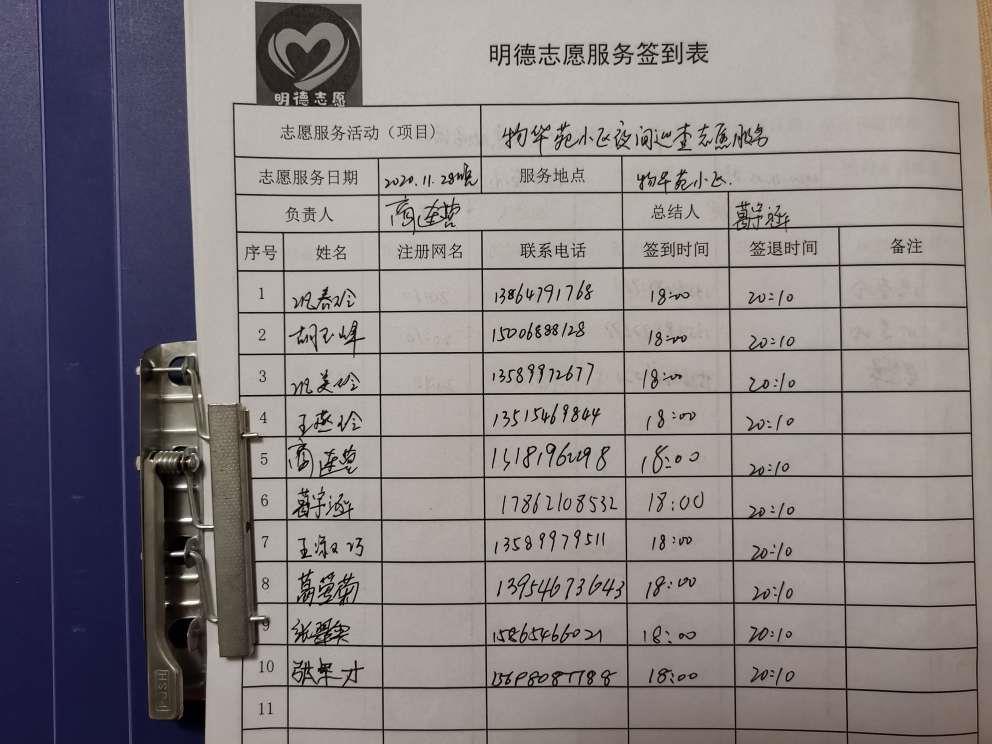 明德志愿
明德志愿服务签到表
志愿服务活动（项目） 物华苑小区夜间巡查志愿服务
志愿服务日期 2020.11.28晚 服务地点 物华苑小区.
负责人 商连营 总结人 葛宇涵
序号 姓名 注册网名 联系电话 签到时间 签退时间 备注
1 巩春玲 13864791768 18:00 20:10
2 胡玉峰 15006888128 18:00 20:10
3 巩美玲 13589972677 18:00 20:10
4 王燕玲 13515469844 18:00 20:10
5 商连营 13181962298 18:00 20:10
6 葛宇涵 17862108532 18:00 20:10
7 王 巧 13589979511 18:00 20:10
8 葛莹菊 13954673643 18:00 20:10
9 张 15865466021 18:00 20:10
10 张 才 18:00 20:10
11
PUSH